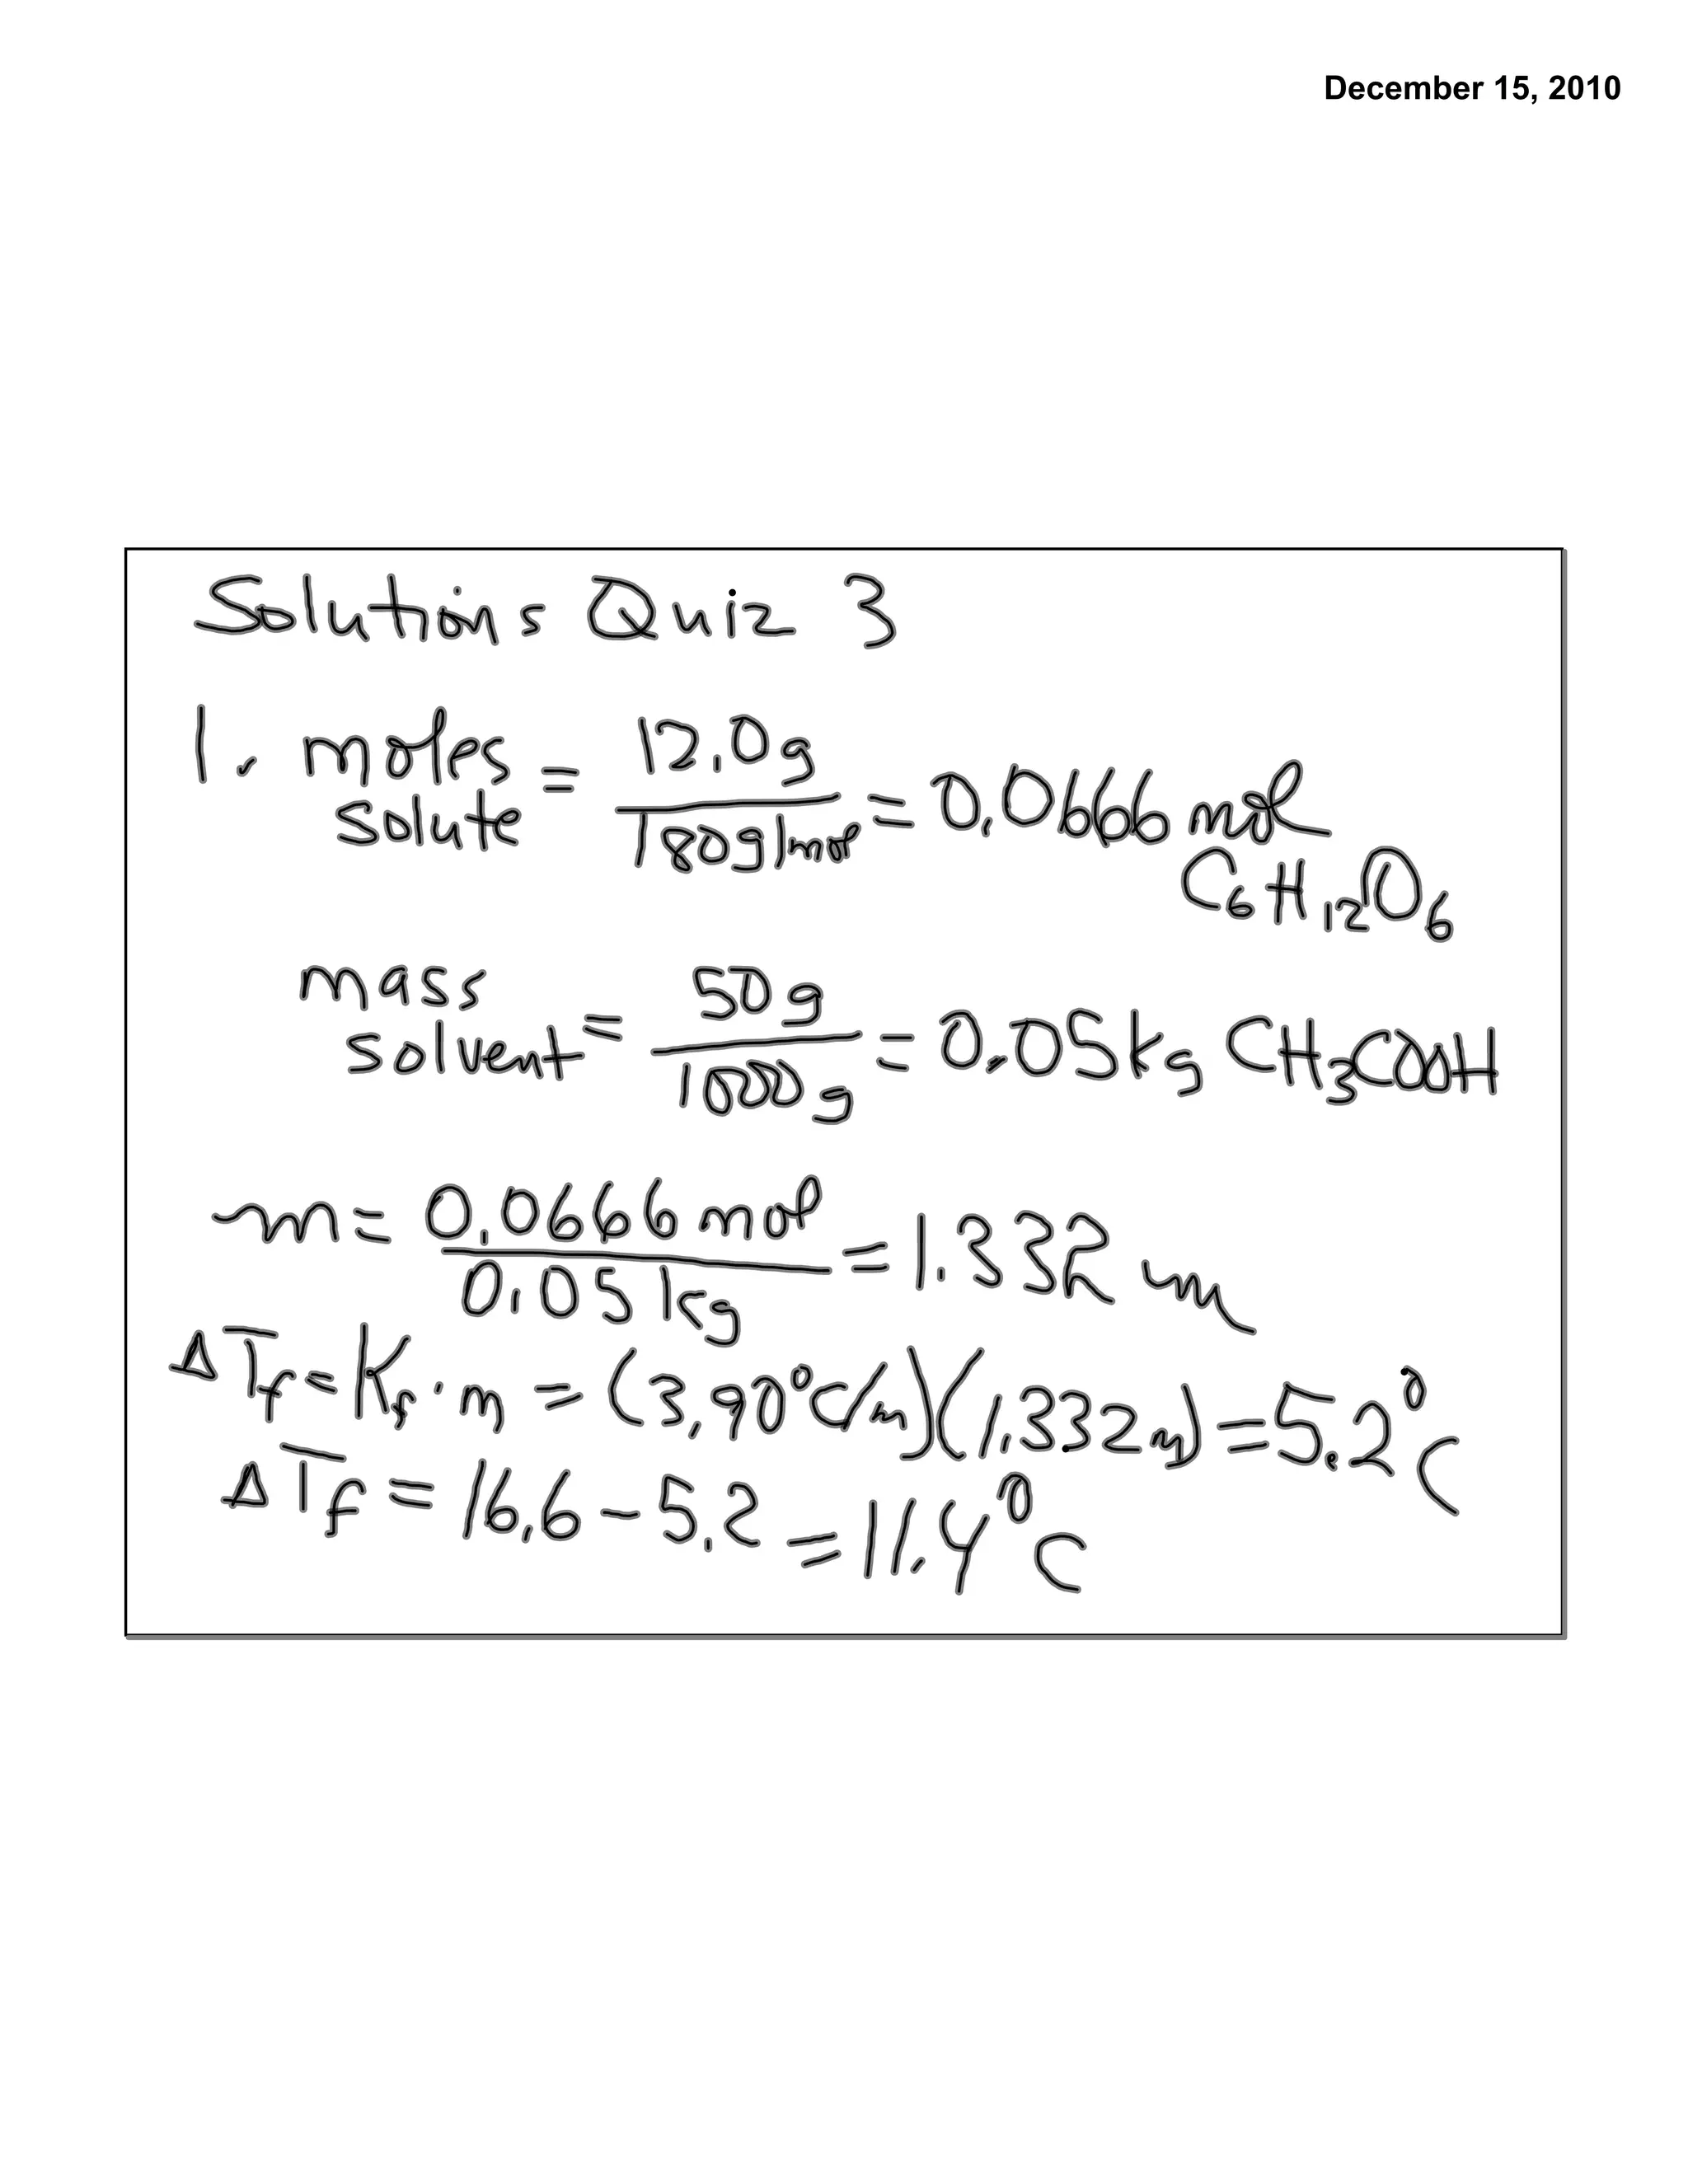 December 15, 2010
Solutions Quiz 3
1. moles solute = 12.0g / 180g/mol = 0.0666 mol C6H12O6
mass solvent = 50g / 1000g = 0.05kg CH3COOH
m = 0.0666 mol / 0.05 kg = 1.332 m
ΔTf = Kf · m = (3.90°C/m)(1.332m) = 5.2°C
ΔTf = 16.6 - 5.2 = 11.4°C